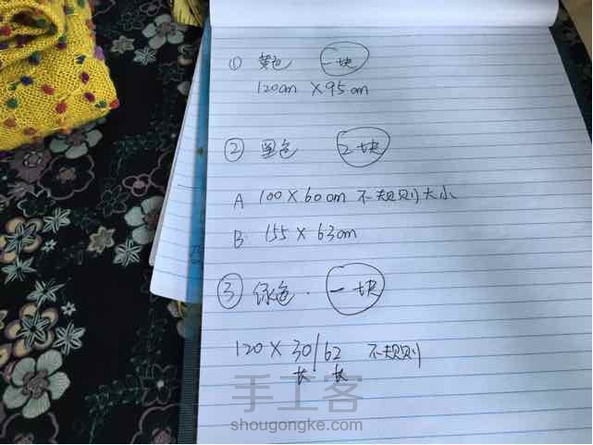 ① 黄色 一块
120cm ×95cm
② 黑色 2块
A 100×60cm 不规则大小
B 155×63cm
③ 绿色. 一块
120×30/62 不规则
长 长
手工客
shougongke.com